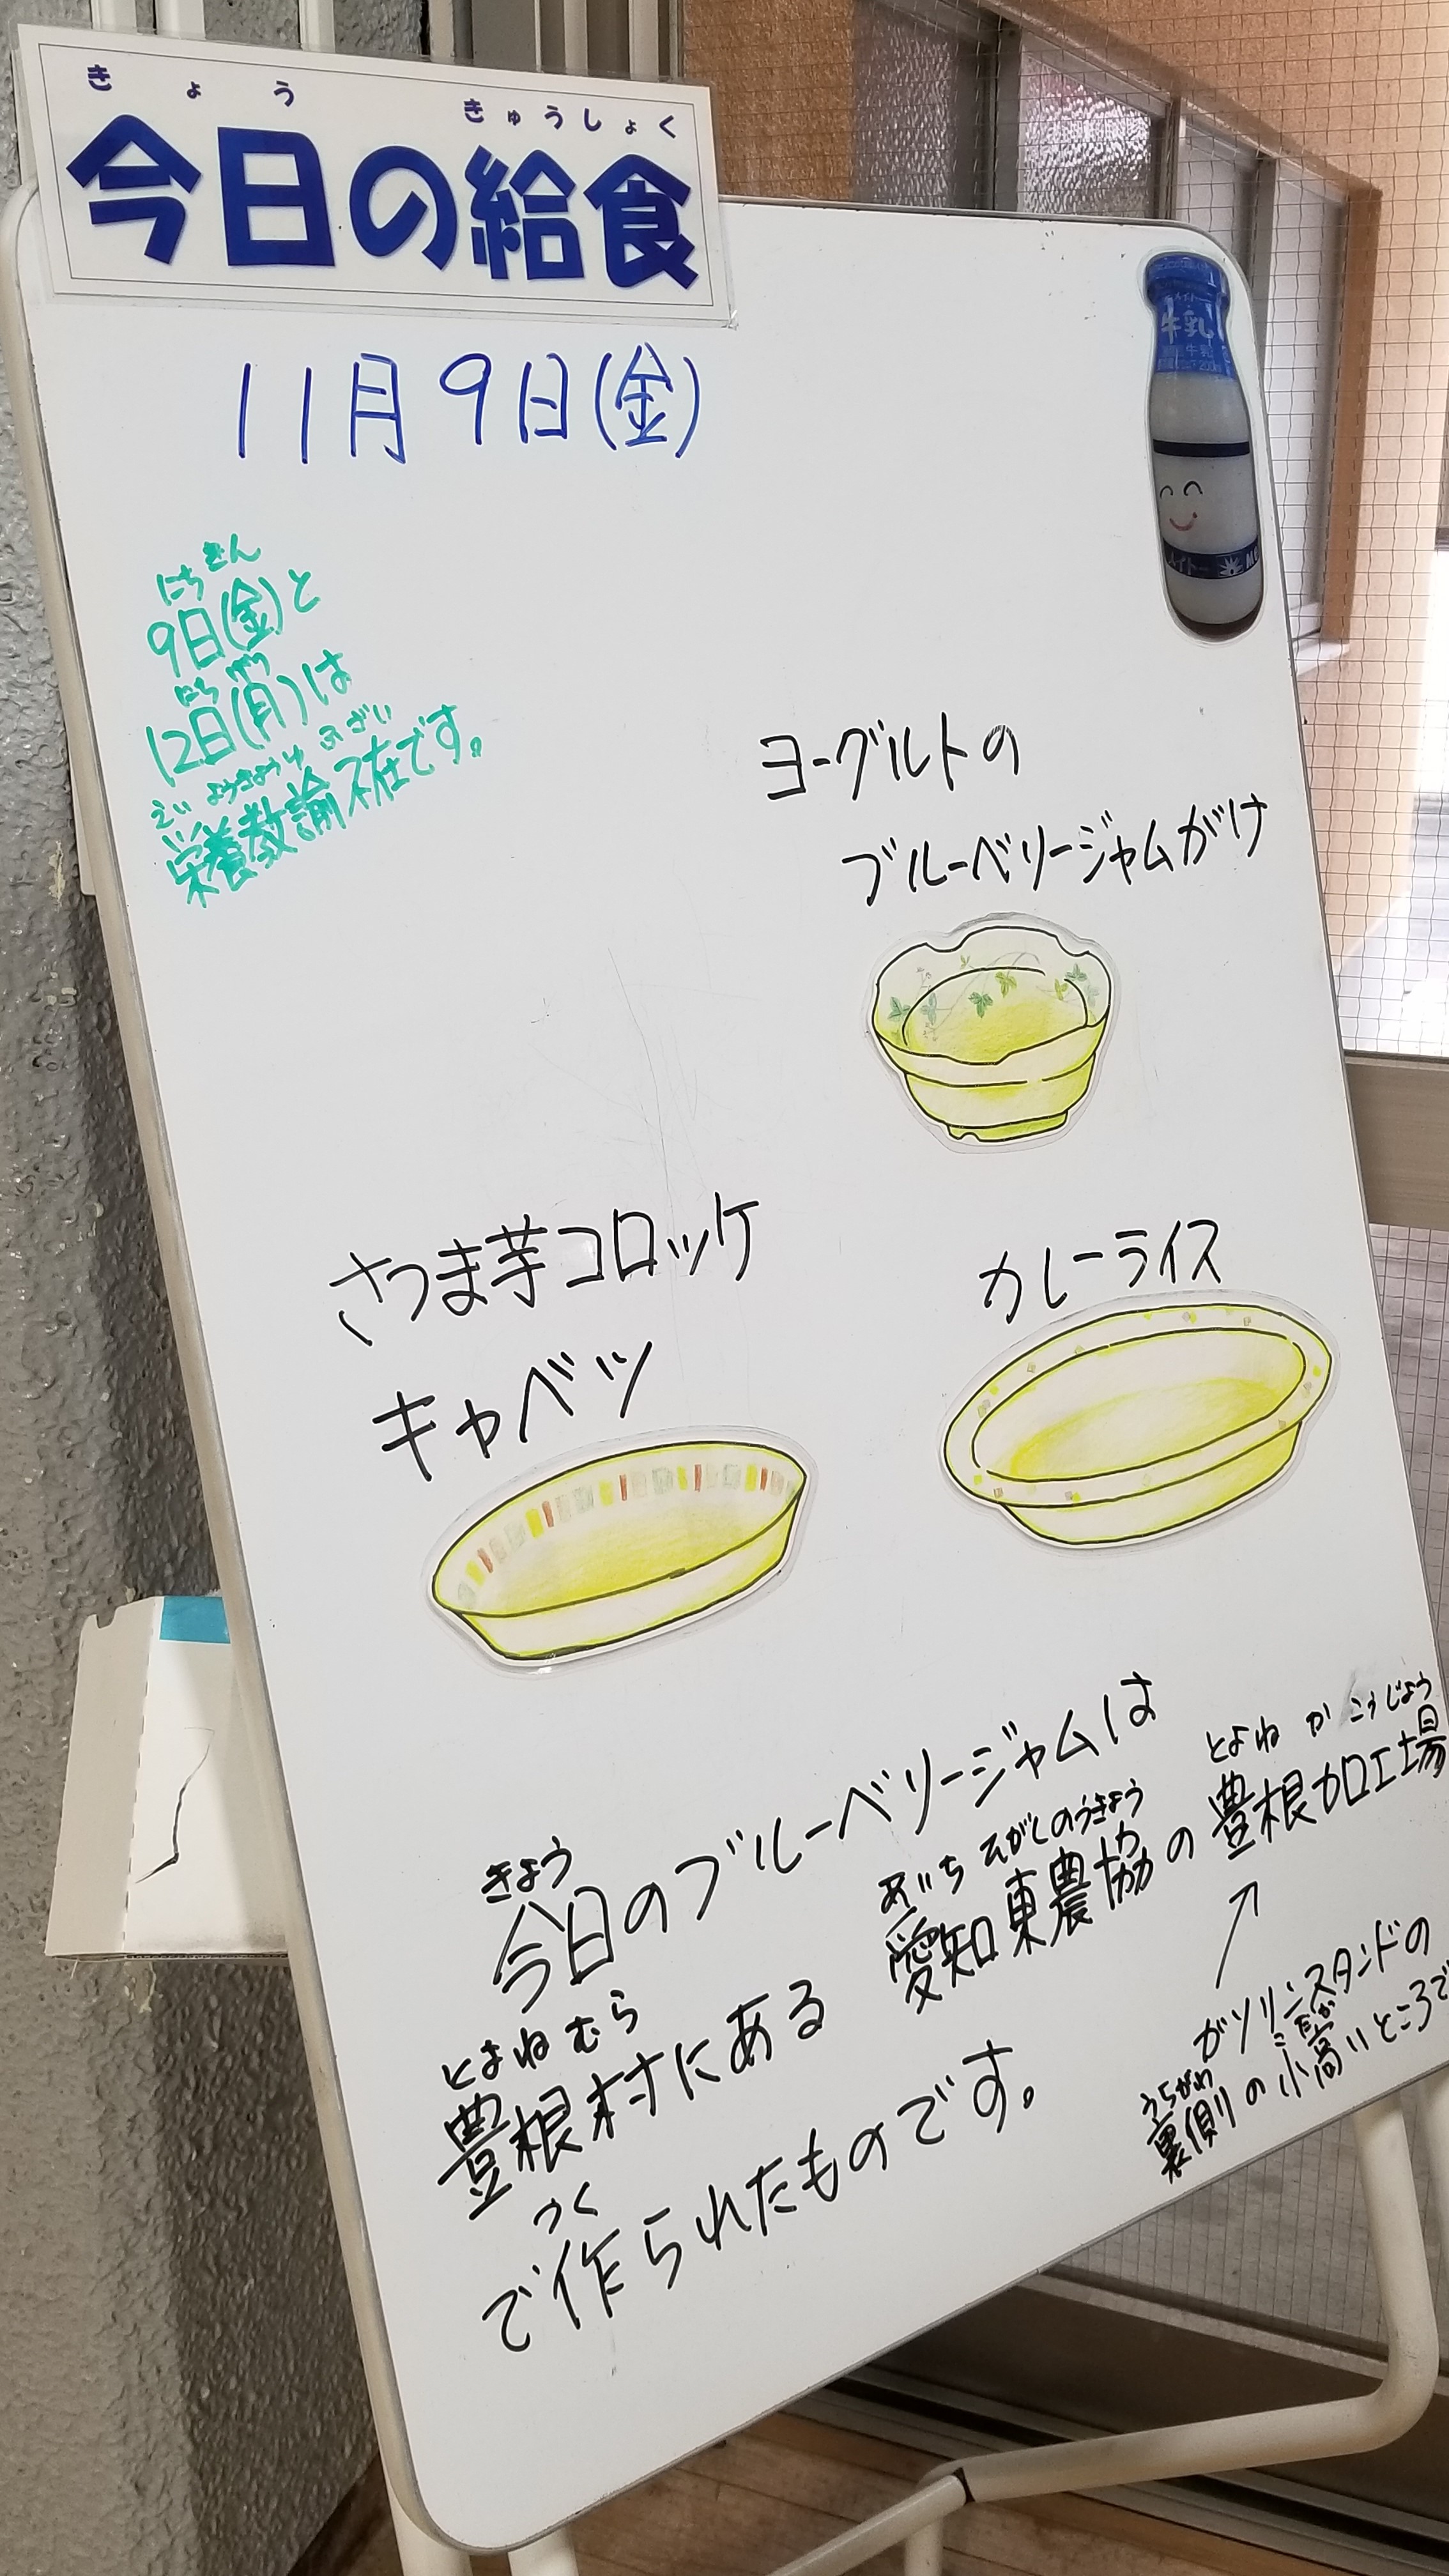 きょう きゅうしょく
今日の給食
11月9日(金)
牛乳
メイトー
にち きん
9日(金)と
にち げつ
12日(月)は
えいようきょうゆ ふざい
栄養教諭不在です。
ヨーグルトの
ブルーベリージャムがけ
さつま芋コロッケ
キャベツ
カレーライス
きょう
今日のブルーベリージャムは
とよね むら
豊根村にある
あいち ひがしのうきょう
愛知東農協の
とよね か こうじょう
豊根加工場
つく
で作られたものです。
ガソリンスタンドの
うらがわ こ だか
裏側の小高いところで